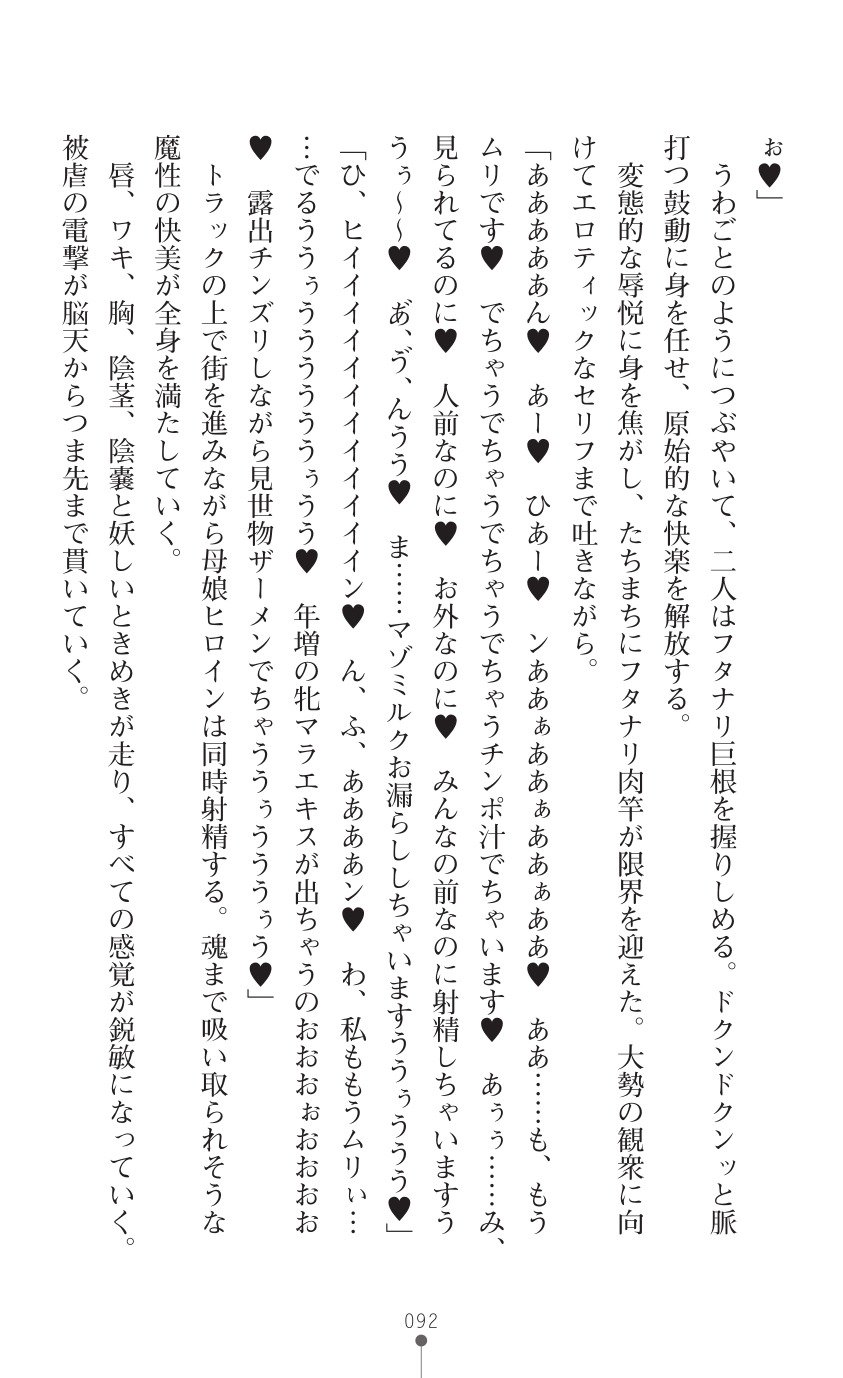 ぉ♥」
　うわごとのようにつぶやいて、二人はフタナリ巨根を握りしめる。ドクンドクンッと脈
打つ鼓動に身を任せ、原始的な快楽を解放する。
　変態的な辱悦に身を焦がし、たちまちにフタナリ肉竿が限界を迎えた。大勢の観衆に向
けてエロティックなセリフまで吐きながら。
「あああああん♥　あー♥　ひあー♥　ンああぁああぁああぁああ♥　ああ……も、もう
ムリです♥　でちゃうでちゃうでちゃうでちゃうチンポ汁でちゃいます♥　あぅぅ……み、
見られてるのに♥　人前なのに♥　お外なのに♥　みんなの前なのに射精しちゃいますう
うぅ～～♥　あ゛、ゔ、んうう♥　ま……マゾミルクお漏らししちゃいますううぅううう♥」
「ひ、ヒイイイイイイイイイイイン♥　ん、ふ、ああああン♥　わ、私ももうムリぃ…
…でるううぅうううううぅうう♥　年増の牝マラエキスが出ちゃうのおおおぉおおおお
♥　露出チンズリしながら見世物ザーメンでちゃううぅうううぅう♥」
　トラックの上で街を進みながら母娘ヒロインは同時射精する。魂まで吸い取られそうな
魔性の快美が全身を満たしていく。
　唇、ワキ、胸、陰茎、陰嚢と妖しいときめきが走り、すべての感覚が鋭敏になっていく。
被虐の電撃が脳天からつま先まで貫いていく。
092